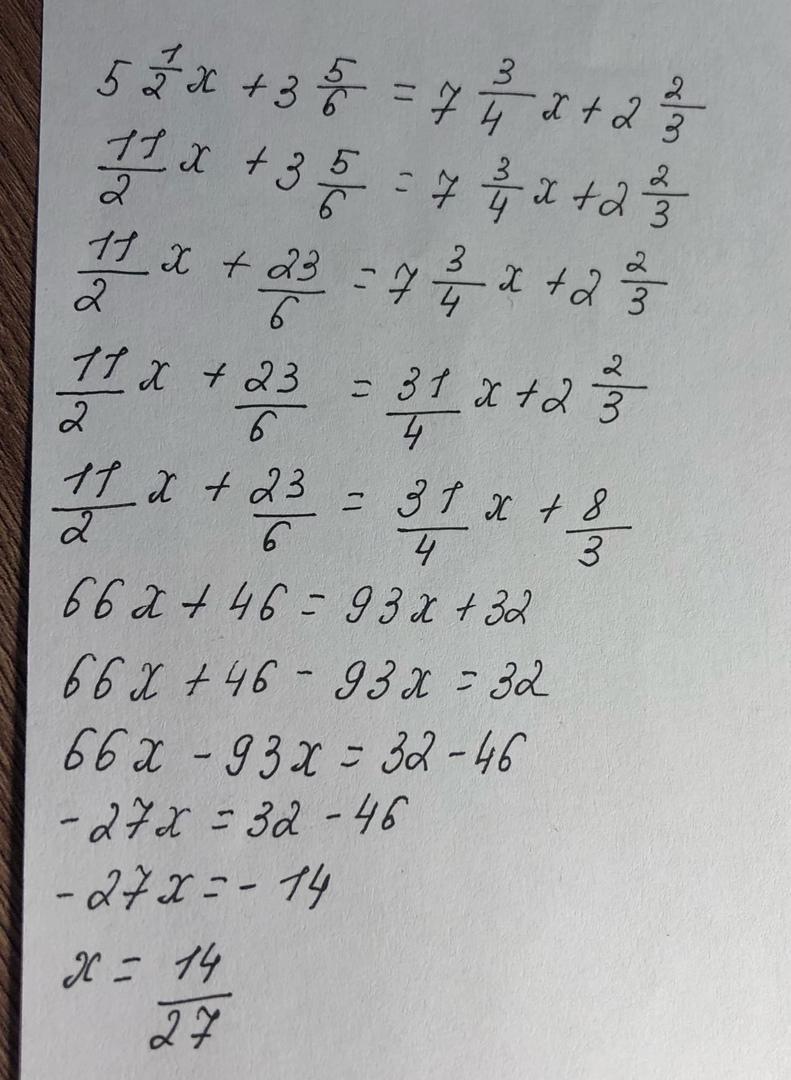 5 1/2 x + 3 5/6 = 7 3/4 x + 2 2/3
11/2 x + 3 5/6 = 7 3/4 x + 2 2/3
11/2 x + 23/6 = 7 3/4 x + 2 2/3
11/2 x + 23/6 = 31/4 x + 2 2/3
11/2 x + 23/6 = 31/4 x + 8/3
66x + 46 = 93x + 32
66x + 46 - 93x = 32
66x - 93x = 32 - 46
-27x = 32 - 46
-27x = -14
x = 14/27